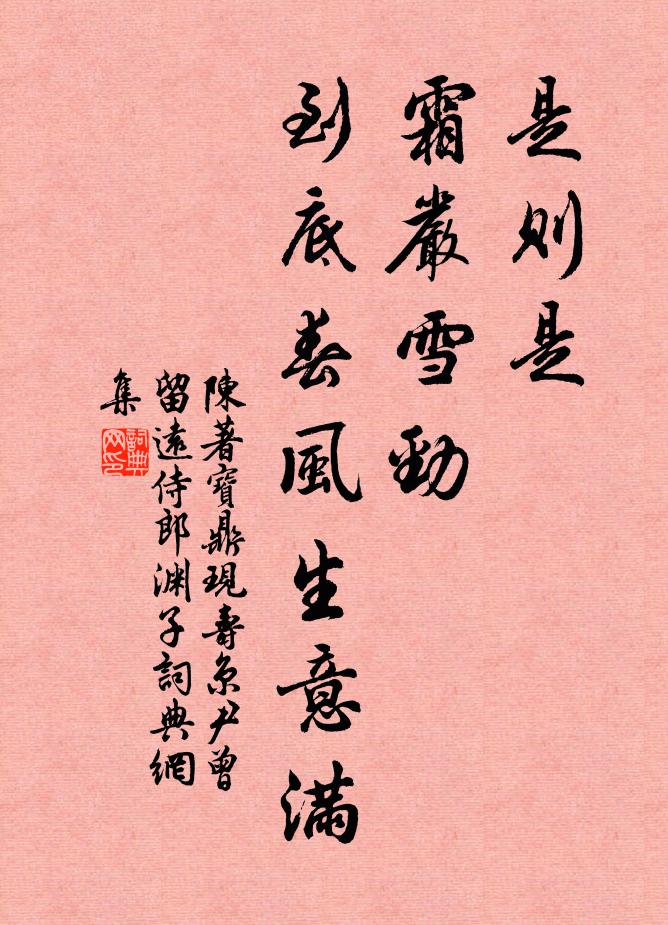 是則是
霜嚴雪勁
到底春風生意滿
陳著寶鼎現壽京尹曾
留遠侍郎淵子詞典網
集
詞典網印